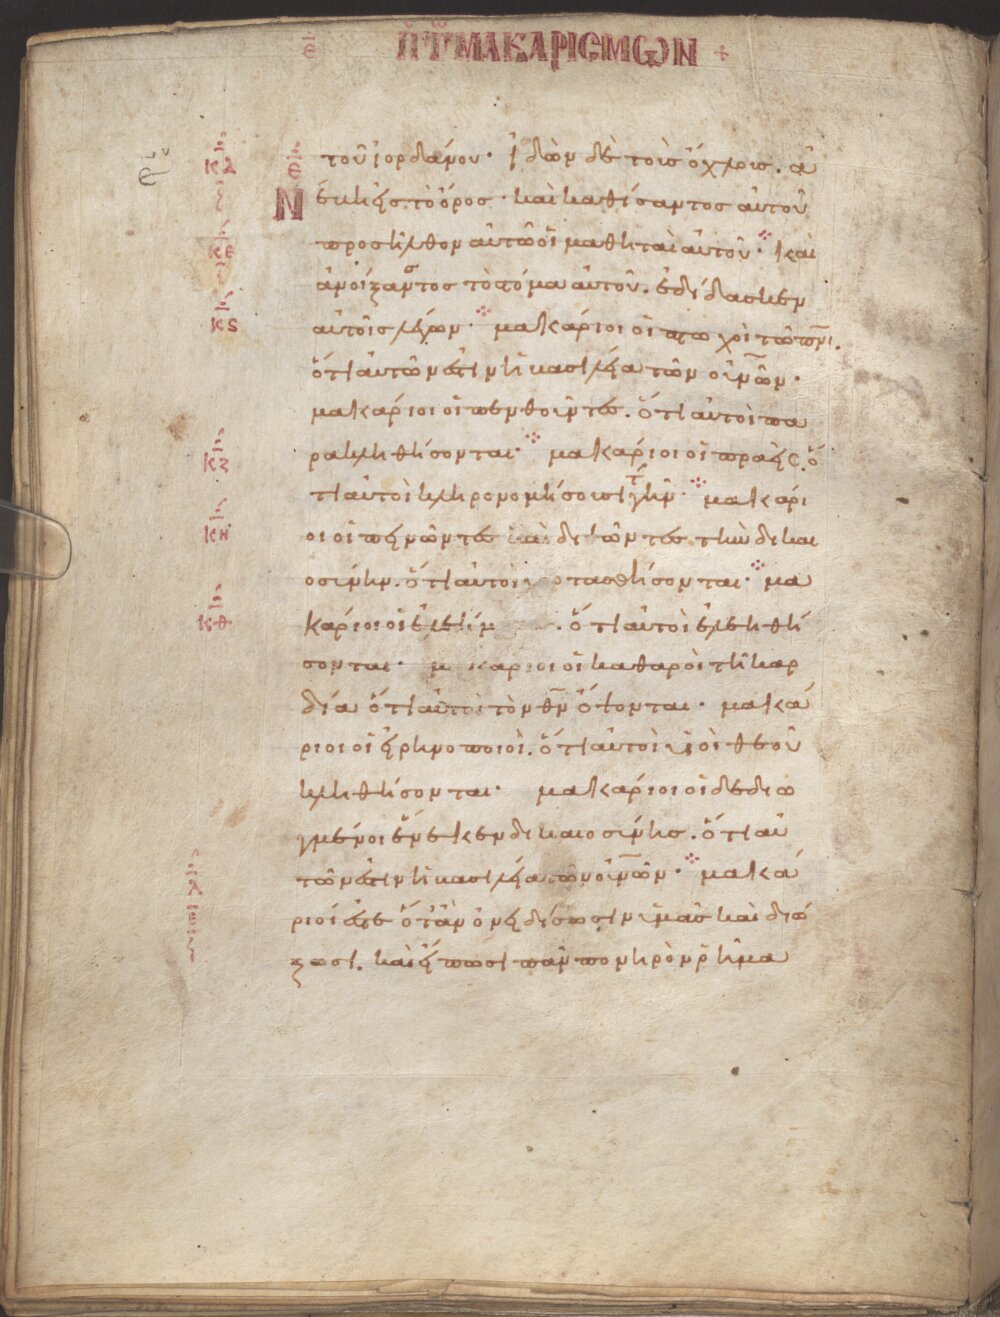 ε̅ π τ μακαρισμων +
κδ ε τοῦ ἰορδάνου· ἰδὼν δὲ τοὺσ ὄχλουσ. ἀ
Ν έβη εἰς τὸ ὄρος· καὶ καθίσαντος αὐτοῦ
κε προσῆλθον αὐτῶ οἱ μαθηταὶ αὐτοῦ· καὶ
ἀνοίξαντος τὸ στόμα αὐτοῦ. ἐδίδασκεν
κς αὐτοὺσ λέγων· μακάριοι οἱ πτωχοὶ τῶ πνι.
ὅτι αὐτῶν ἐστιν ἡ βασιλεία τῶν οὐνῶν·
μακάριοι οἱ πενθοῦντες. ὅτι αὐτοὶ πα
κζ ρακληθήσονται· μακάριοι οἱ πραεῖς. ὅ
τι αὐτοὶ κληρονομήσουσι τὴν γῆν· μακάρι
κη οι οἱ πεινῶντες καὶ διψῶντες τὴν δικαι
οσύνην. ὅτι αὐτοὶ χορτασθήσονται· μα
κθ κάριοι οἱ ἐλεήμ . ὅτι αὐτοὶ ἐλεηθή
σονται· μακάριοι οἱ καθαροὶ τῆ καρ
δία ὅτι αὐτοὶ τὸν θν ὄψονται· μακά
ριοι οἱ εἰρηνοποιοὶ. ὅτι αὐτοὶ υἱοὶ θεοῦ
κληθήσονται· μακάριοι οἱ δεδιω
γμένοι ἕνεκεν δικαιοσύνησ. ὅτι αὐ
λ τῶν ἐστιν ἡ βασιλεία τῶν οὐνῶν· μακά
ριοί ἐστε ὅταν ὀνειδίσωσιν ὑμᾶσ καὶ διώ
ξωσι. καὶ εἴπωσι πᾶν πονηρὸν ῥῆμα